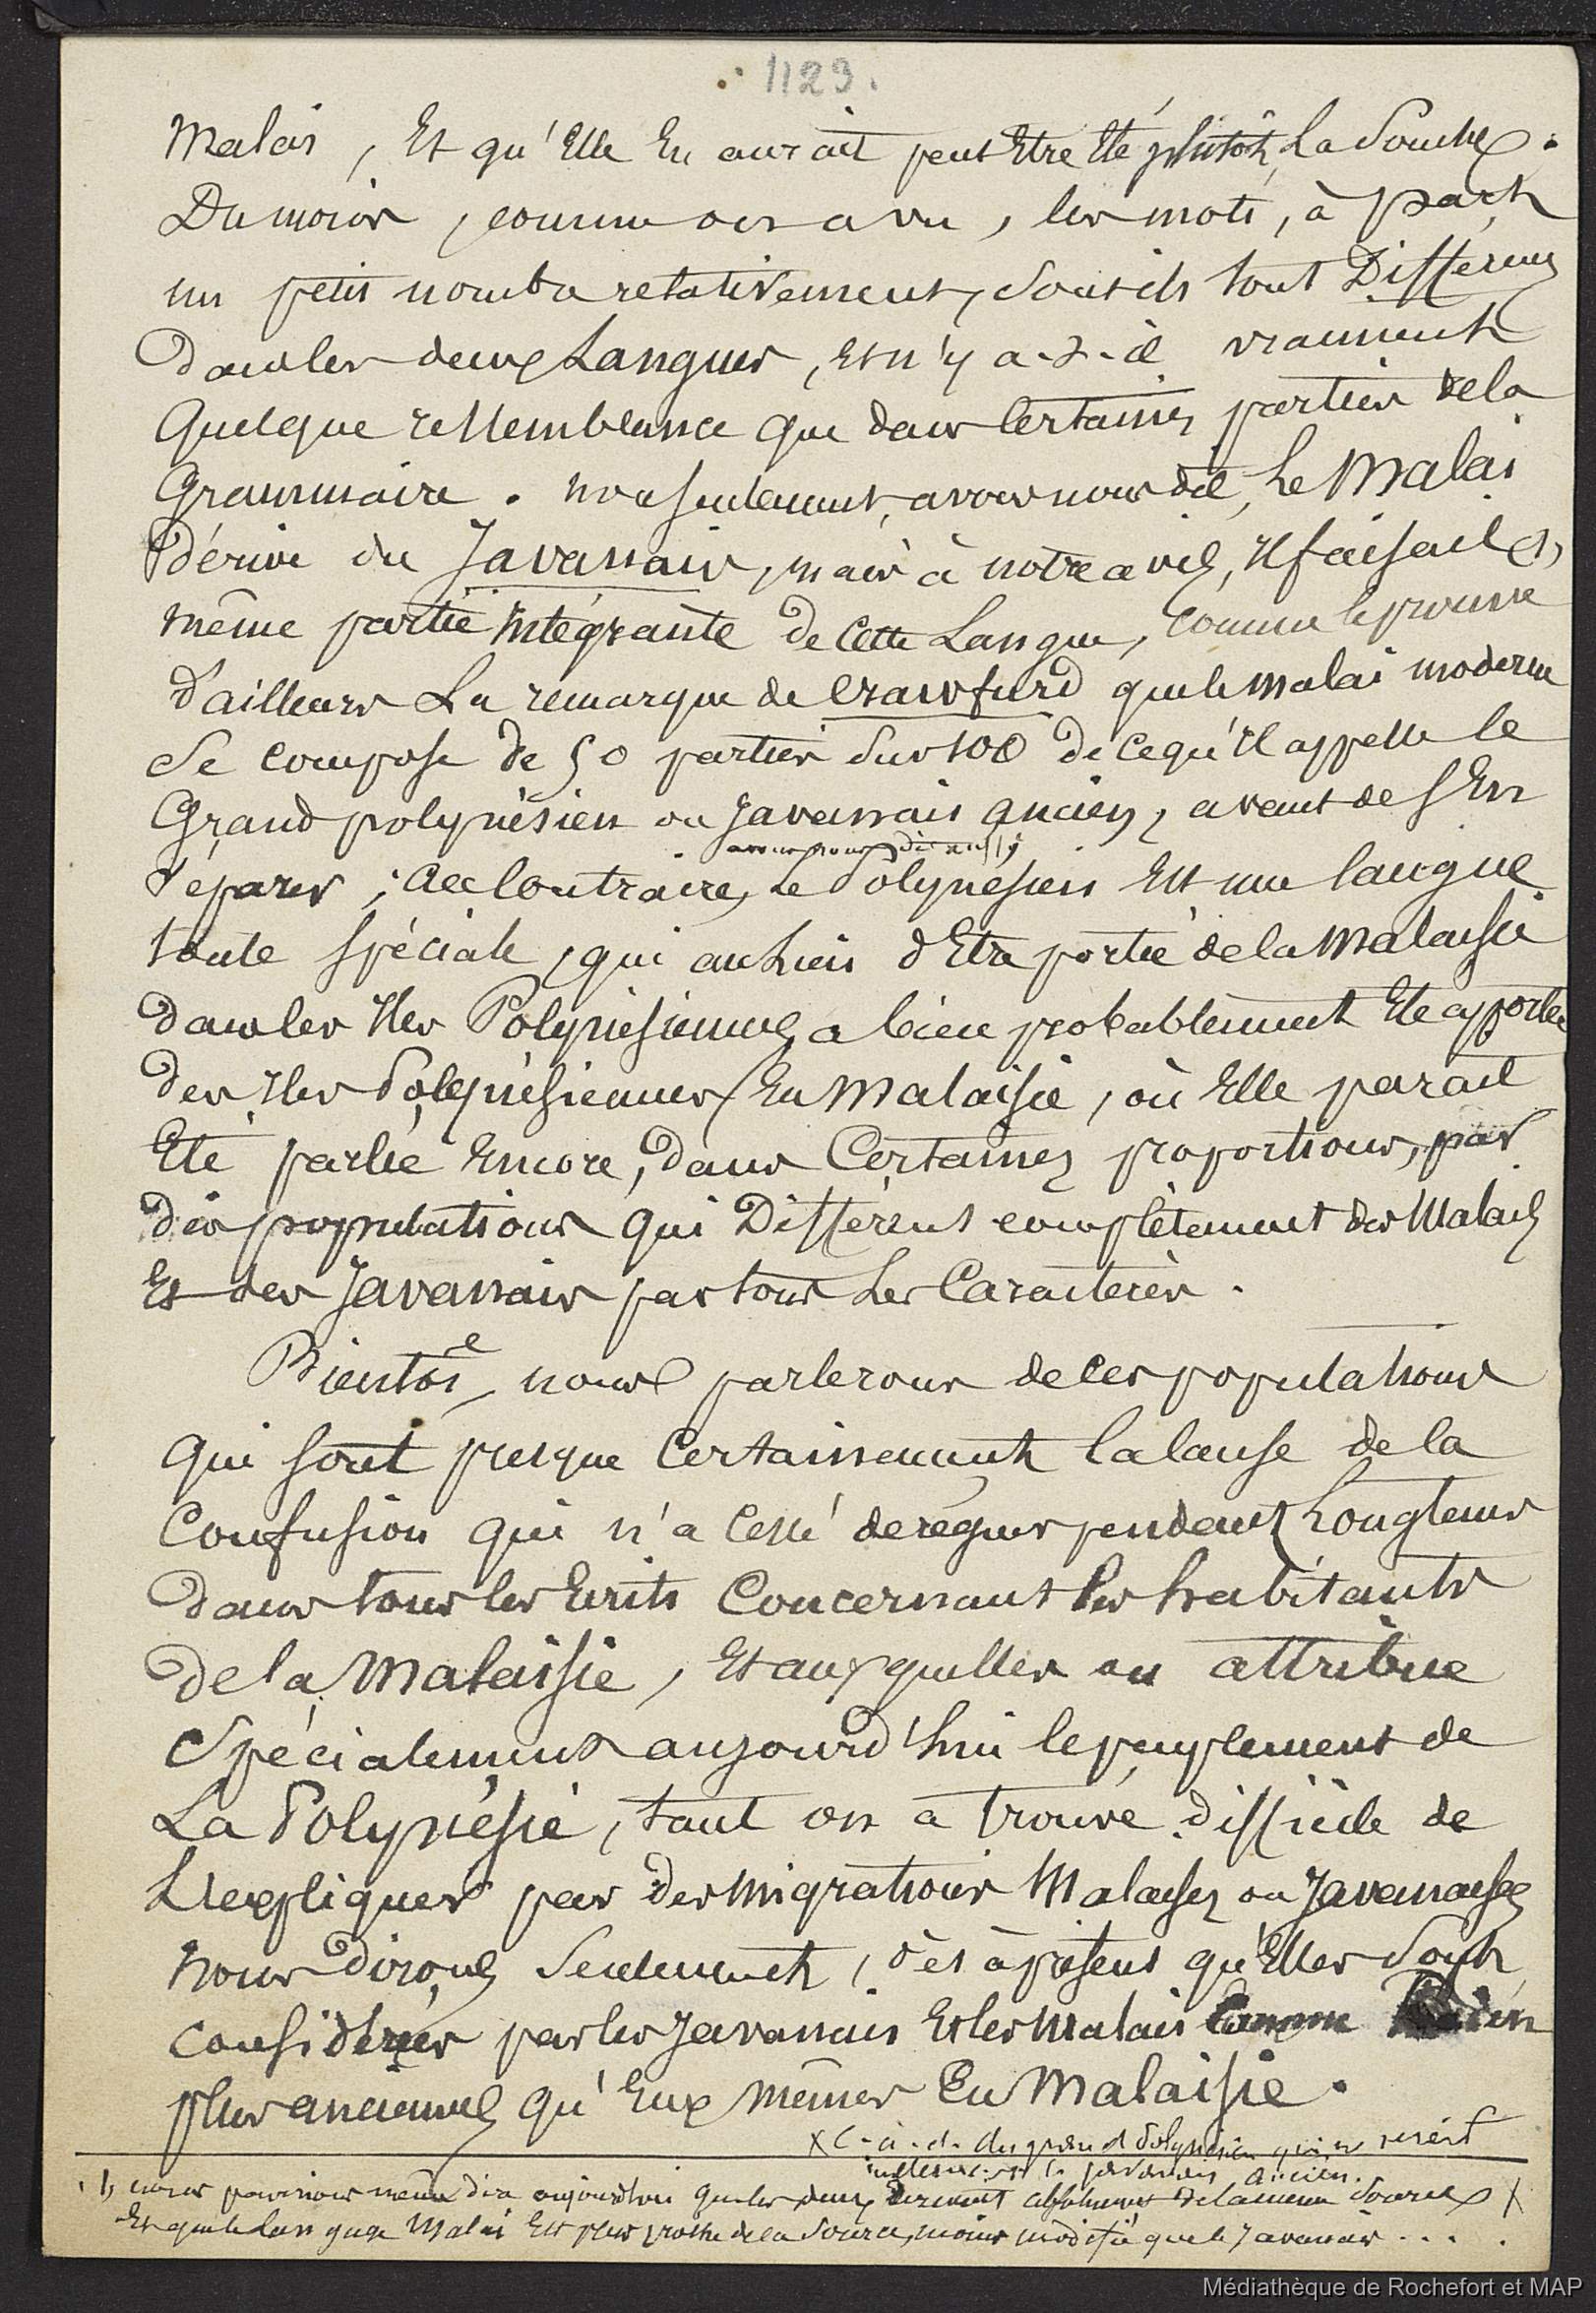 1129.
Malais, Et qu'Elle En aurait peut Etre Eté plutôt, la Souche.
Du moins, comme on a vu, les mots, à part
un petit nombre relativement, sont ils tout Différens
dans les deux Langues, Et n'y a-t-il vraiment
quelque ressemblance que dans certaines parties de la
Grammaire. non seulement, avons nous dit, le Malai
dérive du Javanais, mais à notre avis, il faisait (1)
même partie intégrante de cette Langue, comme le prouve
d'ailleurs La remarque de Crawfurd que le malai moderne
se compose de 50 parties sur 100 de ce qu'il appelle le
Grand polynésien ou Javanais ancien, avant de s'En
avons nous dit aussi,
séparer ; Au Contraire, le Polynésien Est une langue
toute spéciale, qui au lieu d'Etre portée de la Malaisie
dans les Iles Polynésiennes a bien probablement Eté apportée
des Iles Polynésiennes En Malaisie, où Elle parait
Eté parlée Encore, dans Certaines proportions, par
des populations qui Diffèrent complètement des Malais
Et des Javanais par tous les Caractères.
Bientôt nous parlerons de ces populations
qui sont presque Certainement la cause de la
Confusion qui n'a cessé de régner pendant Longtems
dans tous les Ecrits Concernant les habitants
de la Malaisie, Et auxquelles on attribue
Spécialement aujourd'hui le peuplement de
La Polynésie, tant on a trouvé difficile de
L'expliquer par des migrations Malaises ou Javanaises
nous dirons seulement, dès à présent qu'Elles sont
considérées par les Javanais Et les Malais comme
plus anciennes qu'Eux mêmes En Malaisie.
X C.-à.-d. du grand Polynésien qui
le javanais ancien.
(1) même dire aujourd'hui que les deux absolument de la même Source X
Et que le langage Malai Est plus proche de la Source, moins modifié que le Javanais . . . .
Médiathèque de Rochefort et MAP